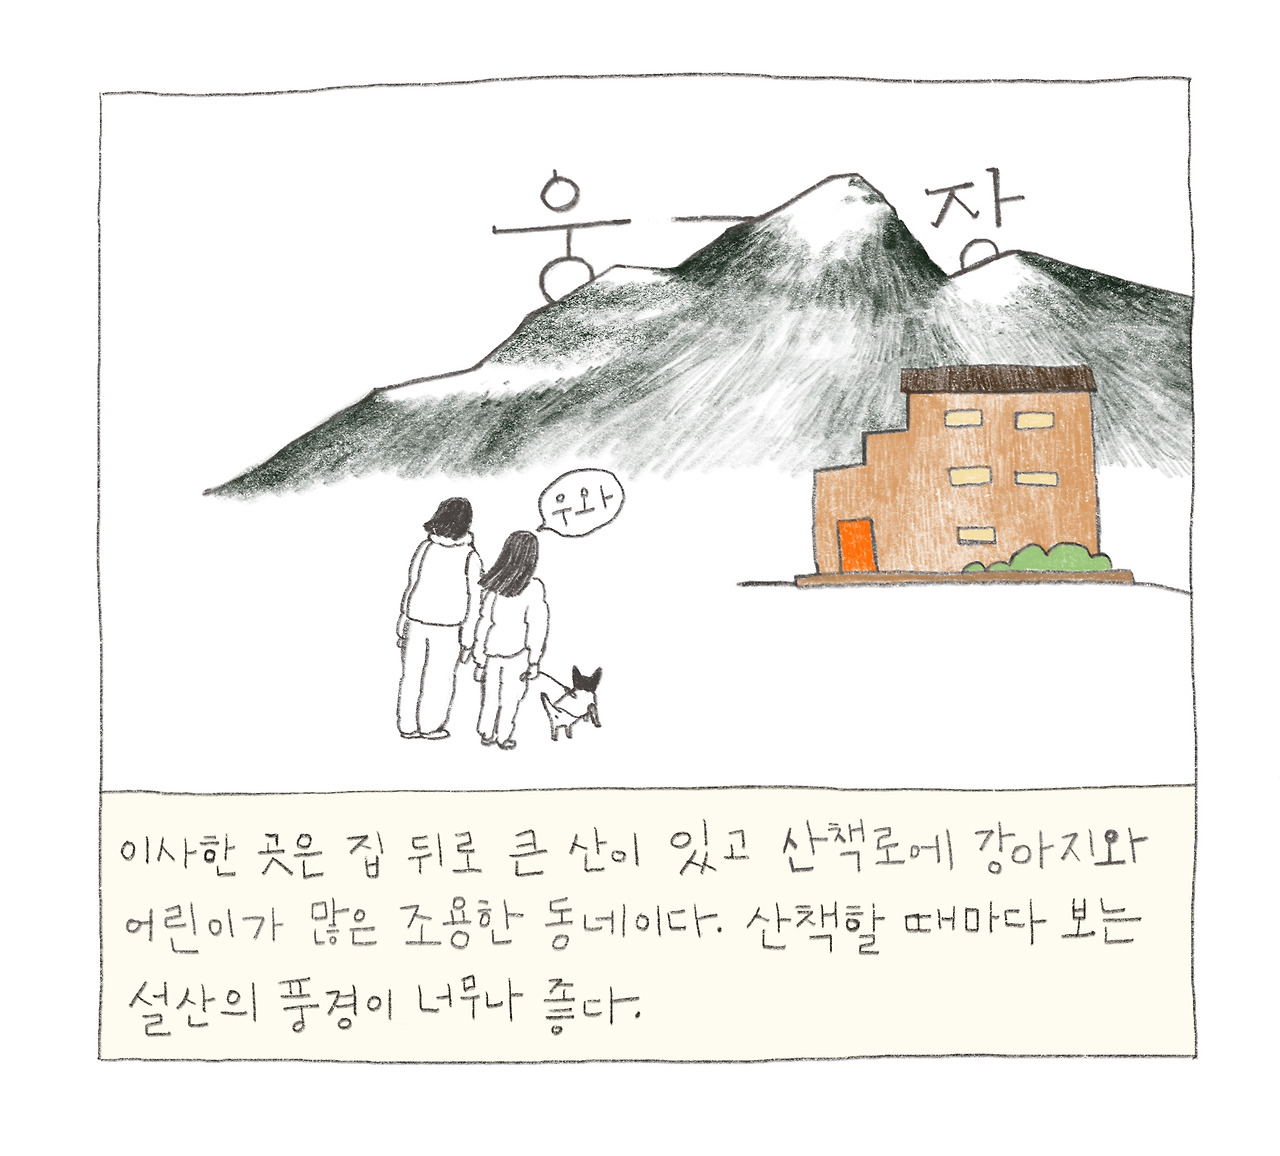 웅 — 장
우와
이사한 곳은 집 뒤로 큰 산이 있고 산책로에 강아지와
어린이가 많은 조용한 동네이다. 산책할 때마다 보는
설산의 풍경이 너무나 좋다.